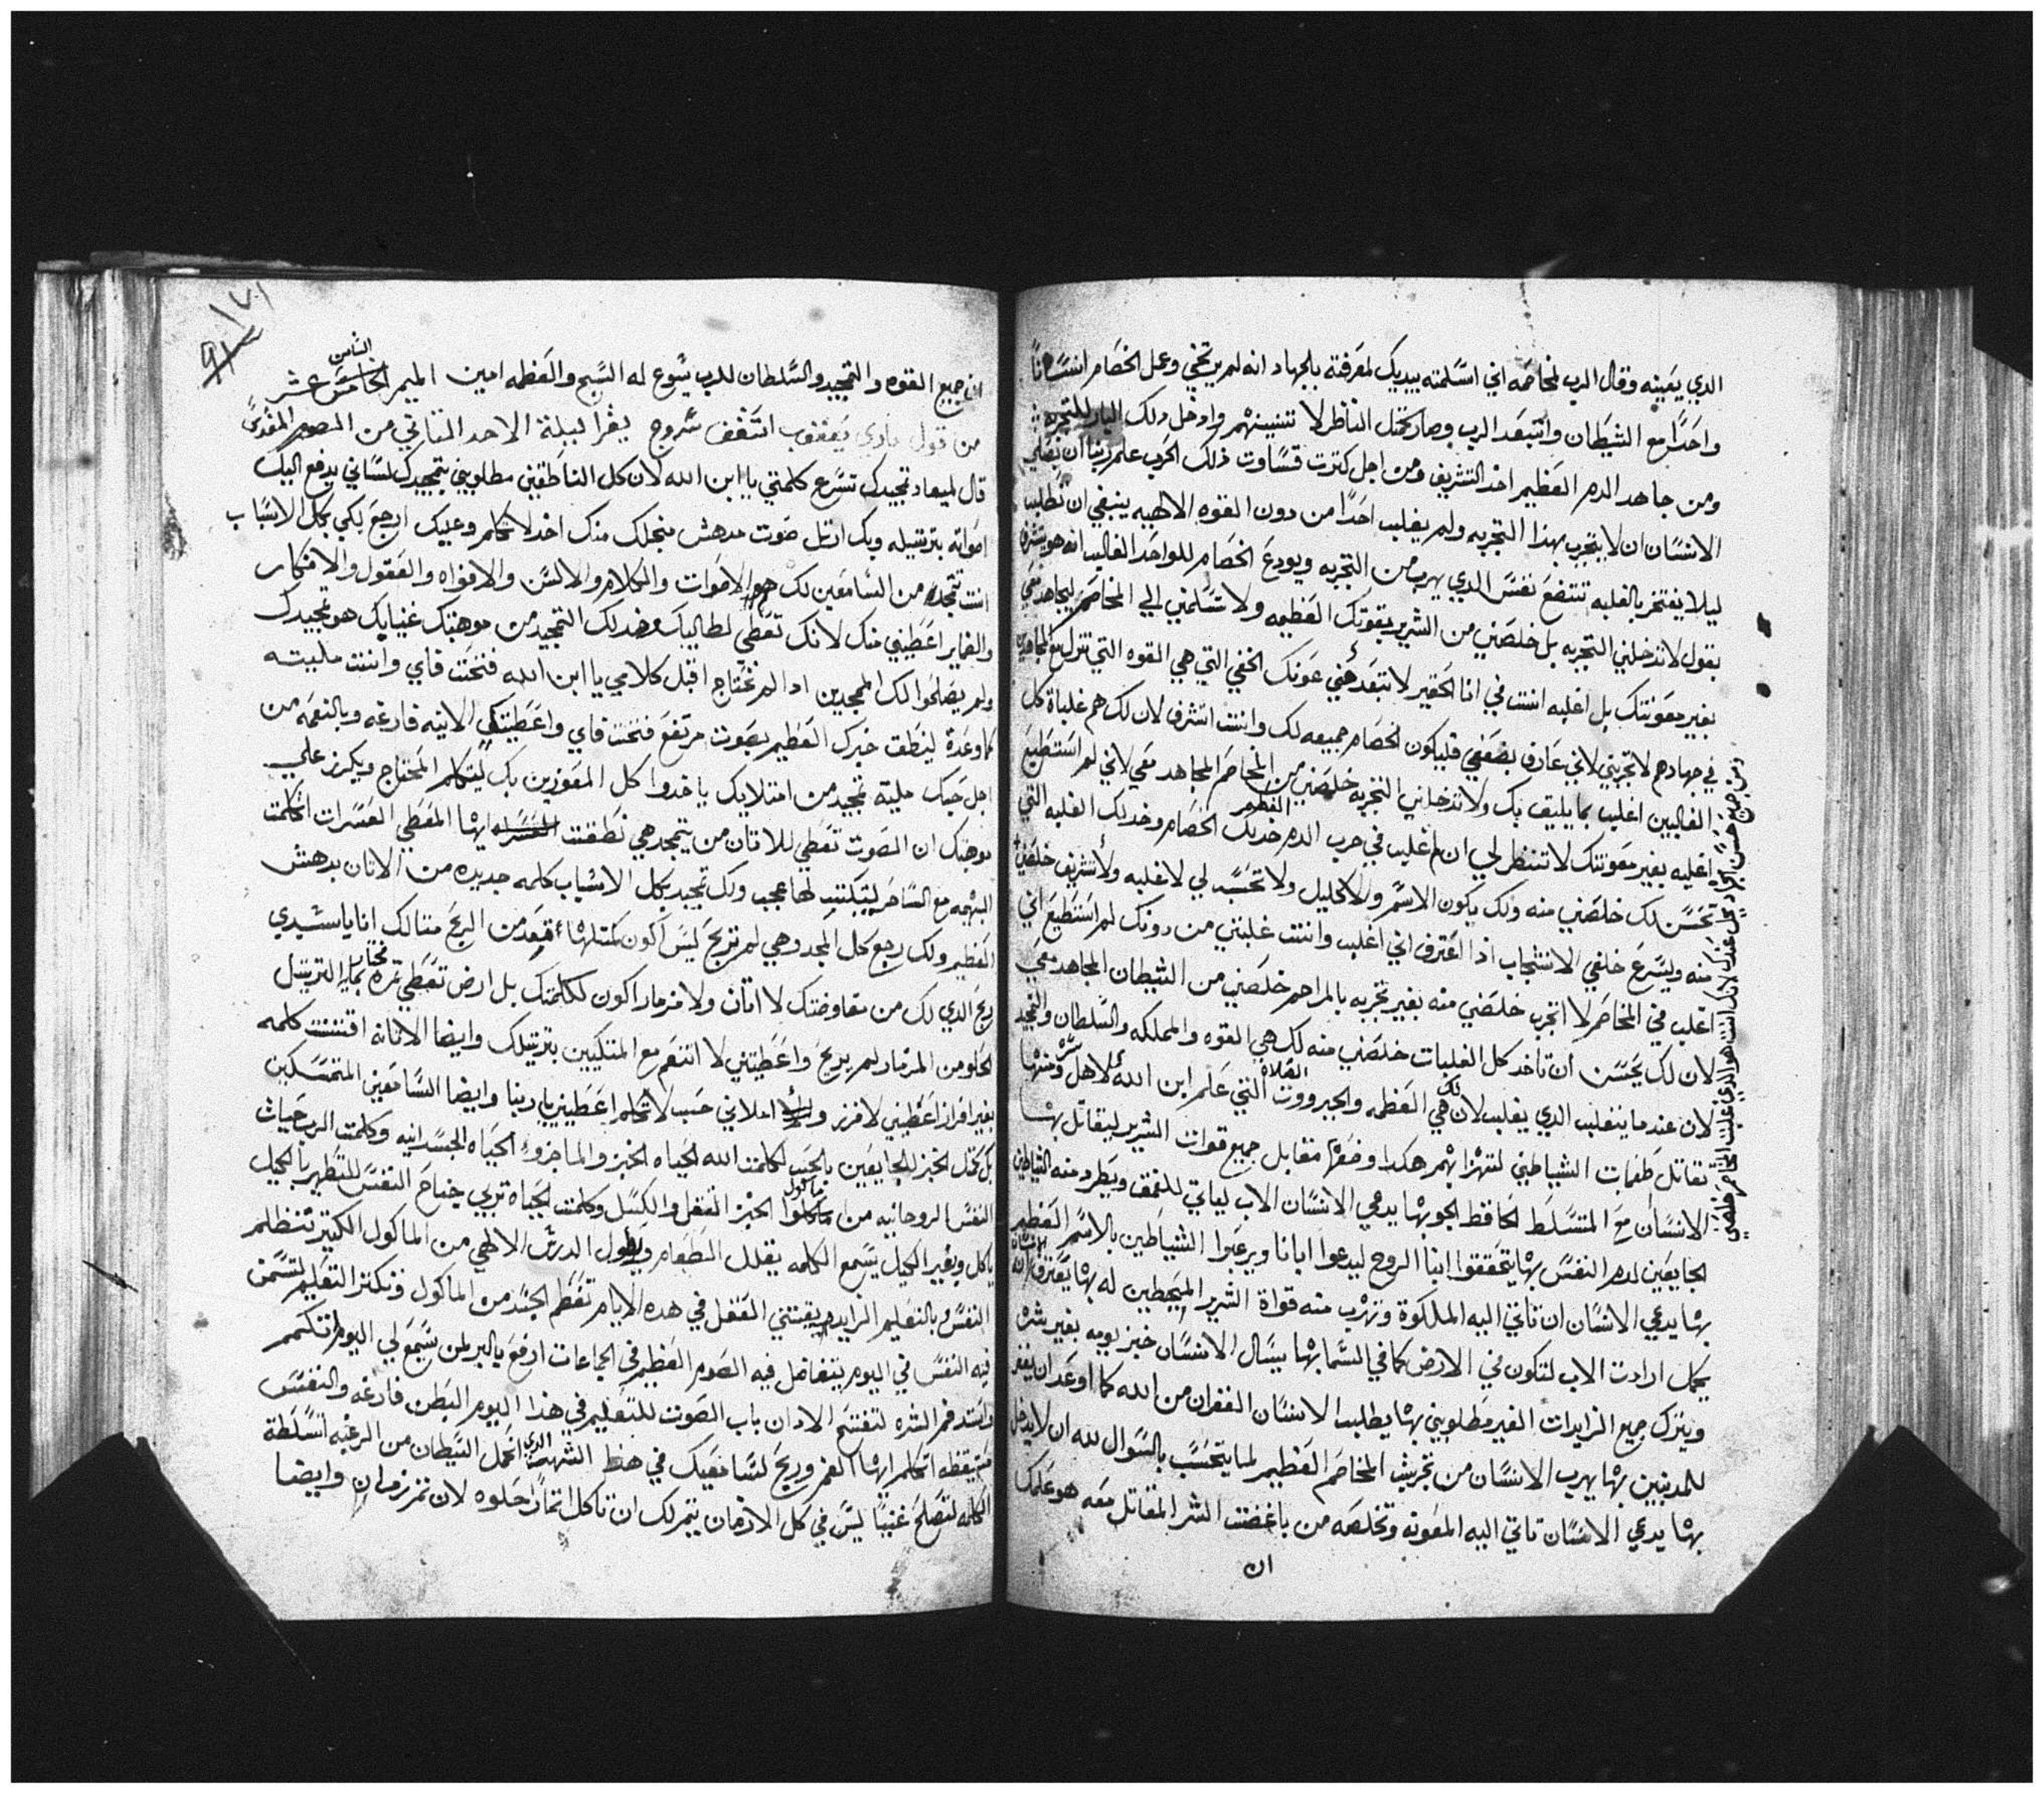 الدي يعينه وقال الرب لمخاصمه اني اسلمته بيديك لمعرفة بالجهاد انه لم يرتخي وعمل الخصام انسانا
واحدا مع الشيطان وابتعد الرب وصار كمثل الناظر لا تنتبينهم وادخل دلك البار للتجربه
ومن جاهد الدم العظيم اخد التشريف ومن اجل كترت قساوت ذلك الحرب علم ربنا ان يصلي
الانسان ان لا يتجرب بهذا التجربه ولم يغلب احدا من دون القوه الالهيه ينبغي ان نطلب
ليلا يفتخر بالغلبه تتضع نفس الدي يهرب من التجربه ويودع الخصام للواحد الغالب انه هو يتشرف
نقول لا تدخلني التجربه بل خلصني من الشرير بقوتك العظيمه ولا تسلمني الي المخاصم ليجاهد معي
بغير معونتك بل اغلبه انت في انا الحقير لا تبتعد عني عونك الخفي التي هي القوه التي تنزل مع المجاهدين
في جهادهم لا تجربني لاني عارف بضعفي فليكون الخصام جميعه لك وانت اتشرف لان لك هم غلباة كل
الغالبين اغلب بما يليق بك ولا تدخلني التجربه خلصني من المخاصم المجاهد معي لاني لم استطيع
اغلبه بغير معونتك لا تنتظر لي ان اغلب في حرب الدم العظيم خد لك الخصام وخد لك الغلبه التي
تحسن لك خلصني منه ولك يكون الاسم والاكليل ولا تحسد لي لا غلبه ولا تشريف خلصني
منه ويسرع خلفي الانتجاب اذا اعترف اني اغلب وانت غلبتني من دونك لم استطيع اني
اغلب في المخاصم لا اتجرب خلصني منه بغير تجربه بالمراحم خلصني من الشيطان المجاهد معي
لان لك يحسن ان تاخد كل الغلبات خلصني منه لك هي القوه والمملكه والسلطان والتمجيد
لان عندما يتغلب الدي يغلب لان لك هي العظمه والجبرووت الصلاه التي علم ابن الله لاهل سره ومنها
تقاتل طغمات الشياطني لتهزا بهم هكدا وضعها مقابل جميع قوات الشرير ليقاتل بها
الانسان مع المتسلط الحافظ الجو بها يدعي الانسان الاب لياتي للنفق ويطرد منه الشياطين
الجايعين لدم النفس بها يتحققوا ابنا الروح ليدعوا ابانا ويرعبوا الشياطين بالاسم العظيم
بها يدعي الانسان ان تاتي اليه الملكوة وتهرب منه قواة الشرير المحيطين له بها يعترف الانسان لله
بكمل ارادت الاب لتكون في الارض كما في السما بها يسال الانسان خبز يومه بغير شره
ويترك جميع الزايدات الغير مطلوبني بها يطلب الانسان الغفران من الله كما اوعد ان يغفر
للمدنبين بها يهرب الانسان من تجريب المخاصم العظيم لما يتحسب بالسوال لله ان لا يدخل
بها يدعي الانسان تاتي اليه المعونه وتخلصه من باغضت الشر المقاتل معه هو علمك
ان
ان جميع القوه والتمجيد والسلطان للرب يسوع له السبح والعظمه امين الميمر الخامس الثامن عشر
من قول ماري يعقوب اسقف سروج يقرا لليلة الاحد التاني من الصوم المقدس
قال لميعاد تمجيدك تسرع كلمتي يا ابن الله لان كل الناطقين مطلوبني بتمجيدك لساني يدفع اليك
اصواته بترتيله وبك ارتل صوت مدهش منجلك منك اخد لاتكلم وعليك ارجع لكي بكل الاسباب
انت تتمجد من السامعين لك هم الاصوات والكلام والالسن والافواه والعقول والافكار
والضماير اعطيني منك لانك تعطي لطالبيك وخد لك التمجيد من موهبتك غنايك هو تمجيدك
ولم يصلحوا لك الممجدين ادا لم تحتاج اقبل كلامي يا ابن الله فتحت فاي وانت مليته
كما وعدة لينطق خبرك العظيم بصوت مرتفع فتحت فاي واعطيتك الانيه فارغه وبالنعمه من
اجل حبك مليه تمجيد من امتلايك ياخدوا كل المعوزين بك ليتكلم المحتاج ويكرز علي
موهبتك ان الصوت تعطي للاتان من يتمجد هي نطقت ايها المعطي العسرات اتكلمت
البهيمه مع الساحر ليتبكت لها عجب ولك تمجيد بكل الاسباب كلمه جديده من الاتان بدهش
العظيم ولك رجع كل المجد وهي لم تربح ليس اكون كمتلها ابعد من الربح متالك انا يا سيدي
ربح الدي لك من مفاوضتك لا اتان ولا مزمار اكون لكلمتك بل ارض تعطي تمره تختار بمايه الترتيل
الحلو من المزمار لم يربح واعطيتني لا اتنعم مع المتكيين بترتيلك وايضا الاتانه اقتنت كلمه
بغير افراز اعطيني لافرز ولا املاني حسب لاتكلم اعطيني يا ربنا وايضا السامعين المتمسكين
بك كمثل الخبز للجايعين بالحب لكلمت الله الحياه الخبز والما جزوء الحياه الجسدانيه وكلمت الرب حياة
النفس الروحانيه من ماكول الخبز الثقل والكسل وكلمت الحياة تربي جناح النفس للتطهير بالكيل
ياكل وبغير الكيل يسمع الكلمه يقلل الطعام ويطول الدرس الالهي من الماكول الكتير تنظلم
النفس وبالتعليم الزايد يقتني العقل في هده الايام تفطم الجسد من الماكول وتكتر التعليم لتسمن
فيه النفس في اليوم يتفاضل فيه الصوم العظيم في الجماعات ارفع يا لبر لمن سمع لي اليوم اتكلم
واسند فم الشره لتفتتح الادان باب الصوت للتعليم في هذا اليوم البطن فارغه والنفس
متيقظه اتكلم ايها الفم وربح لسامعيك في هذا الشهر الدي اتحمل الشيطان من الرغبه اتسلطة
الكلمه لتصلح غنيا ليس في كل الازمان يتم لك ان تاكل اتمار حلوه لان تمرزمان وايضا